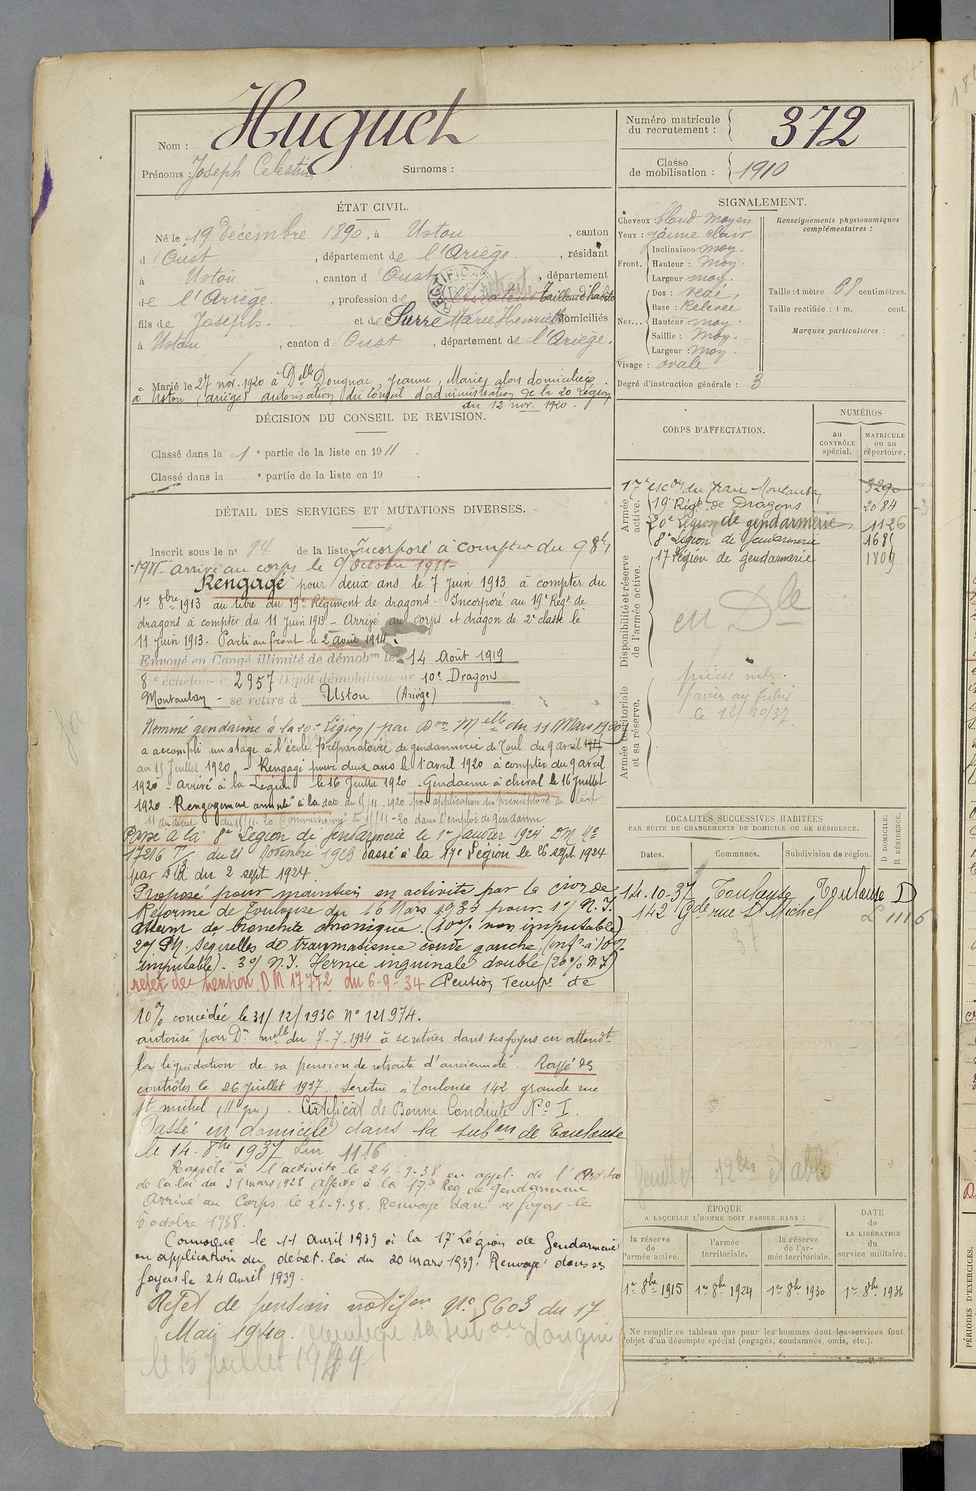 Nom : Huguet
Prénoms : Joseph Celestin Surnoms :
ÉTAT CIVIL.
Né le 19 décembre 1890, à Ustou , canton
d'Oust , département de l'Ariège , résidant
à Ustou , canton d Oust , département
de l'Ariège. , profession de Tailleur d'habits
fils de Joseph. et de Surre Marie Henriette domiciliés
à Ustou , canton d'Oust , département de l'Ariège.
Marié le 27 nov. 1920 à Delle Dougnac, Jeanne, Marie, alors domiciliée
à Ustou (Ariège) autorisation du conseil d'administration de la 20 Légion
du 12 nov. 1920.
DÉCISION DU CONSEIL DE REVISION.
Classé dans la 1 e partie de la liste en 1911 .
Classé dans la e partie de la liste en 19 .
DÉTAIL DES SERVICES ET MUTATIONS DIVERSES.
Inscrit sous le n° 14 de la liste Incorporé à compter du 9 8bre
1911 arrivé au corps le 9 octobre 1911
Rengagé pour deux ans le 7 juin 1913 à compter du
1er 8bre 1913 au titre du 19e Régiment de dragons. Incorporé au 19e Régt de
dragons à compter du 11 Juin 1913 - Arrivé au corps et dragon de 2e classe le
11 juin 1913. Parti au front le 2 août 1914.
Envoyé en Congé illimité de démobon le 14 Août 1919
8e échelon n° 2957 Dépôt démobilisateur 10e Dragons
Montauban - se retire à Ustou (Ariège)
Nommé gendarme à la 20e Légion par Don Melle du 11 Mars 1920
a accompli un stage à l'école préparatoire de gendarmerie de Toul du 9 avril
au 15 Juillet 1920. - Rengagé pour deux ans le 1 avril 1920 à compter du 9 avril
1920 - arrivé à la Légion le 16 Juillet 1920. Gendarme à cheval le 16 Juillet
1920. Rengagement annulé à la date du 11.11.1920 par application des prescriptions de
Commissionné le 11/11-20 dans l'emploi de gendarme
Passé à la 8e Légion de gendarmerie le 1er janvier 1924 DM No
17216 du 21 Novembre 1923 Passé à la 17e Légion le 26 sept 1924
par du 2 sept 1924.
Proposé pour maintien en activité par la Cion de
Réforme de Toulouse du 16 Mars 1933 pour 1°) N.I.
Atteint de bronchite chronique. (10% non imputable)
2°) P.M. Séquelles de traumatisme coude gauche (infr à 10%
imputable). 3°) N.I. Hernie inguinale double (20% N.I)
rejet de pension DM 17772 du 6-9-34 Pension Tempre de
10% concédée le 31/12/1936 N° 121974.
autorisé par Dn melle du 7-7-1934 à se retirer dans ses foyers en attendt
la liquidation de sa pension de retraite d'ancienneté. Rayé des
contrôles le 26 Juillet 1937. Se retire à Toulouse 142 grande rue
St michel, (Hte Gne) . Certificat de Bonne Conduite No I.
Passé en domicile dans la subon de Toulouse
le 14-8bre 1937 1116
Rappelé à l'activité le 24.9.38 en appl. de l'
de la loi du 31 mars 1928 affecté à la 17e Rég. de Gendarmerie
Arrivé au Corps le 26-9-38. Renvoyé dans ses foyers le
6 octobre 1938.
Convoqué le 11 Avril 1939 à la 17e Légion de Gendarmerie
en application du décret-loi du 20 mars 1939. Renvoyé dans ses
foyers le 24 Avril 1939.
Rejet de pension notifon No 5603 du 17
Mai 1940.
Numéro matricule
du recrutement : 372
Classe
de mobilisation : 1910
SIGNALEMENT.
Cheveux blond moyen
Yeux : jaune clair
Front. Inclinaison moy.
Hauteur : Moy.
Largeur moy.
Nez... Dos :
Base : Relevée
Hauteur moy.
Saillie : Moy.
Largeur Moy.
Visage : ovale
Renseignements physionomiques
complémentaires :
Taille : 1 mètre 68 centimètres.
Taille rectifiée : 1 m. cent.
Marques particulières :
Degré d'instruction générale : 3
CORPS D'AFFECTATION.
NUMÉROS
au
CONTRÔLE
spécial.
MATRICULE
ou au
répertoire.
Armée
active.
17e escon du train Montauban 3290
19e Régt de Dragons 2084
20e Légion de gendarmerie 1126
8e Légion de gendarmerie 1685
17 Légion de gendarmerie 1809
Disponibilité et réserve
de l'armée active.
en Dle
Armée territoriale
et sa réserve.
pièces
le 12/10/37.
LOCALITÉS SUCCESSIVES HABITÉES
PAR SUITE DE CHANGEMENTS DE DOMICILE OU DE RÉSIDENCE.
Dates. Communes. Subdivision de région. D. DOMICILE.
R. RÉSIDENCE.
14-10-37 Toulouse Toulouse D
142 Gde rue St Michel 1116
37
ÉPOQUE
A LAQUELLE L'HOMME DOIT PASSER DANS :
la réserve
de
l'armée active.
l'armée
territoriale.
la réserve
de l'ar-
mée territoriale.
DATE
de
LA LIBÉRATION
du
service militaire.
1er 8bre 1915 1er 8bre 1924 1er 8bre 1930 1er 8bre 1936
Ne remplir ce tableau que pour les hommes dont les services font
objet d'un décompte spécial (engagés, condamnés, omis, etc.).
PÉRIODES D'EXERCICES.